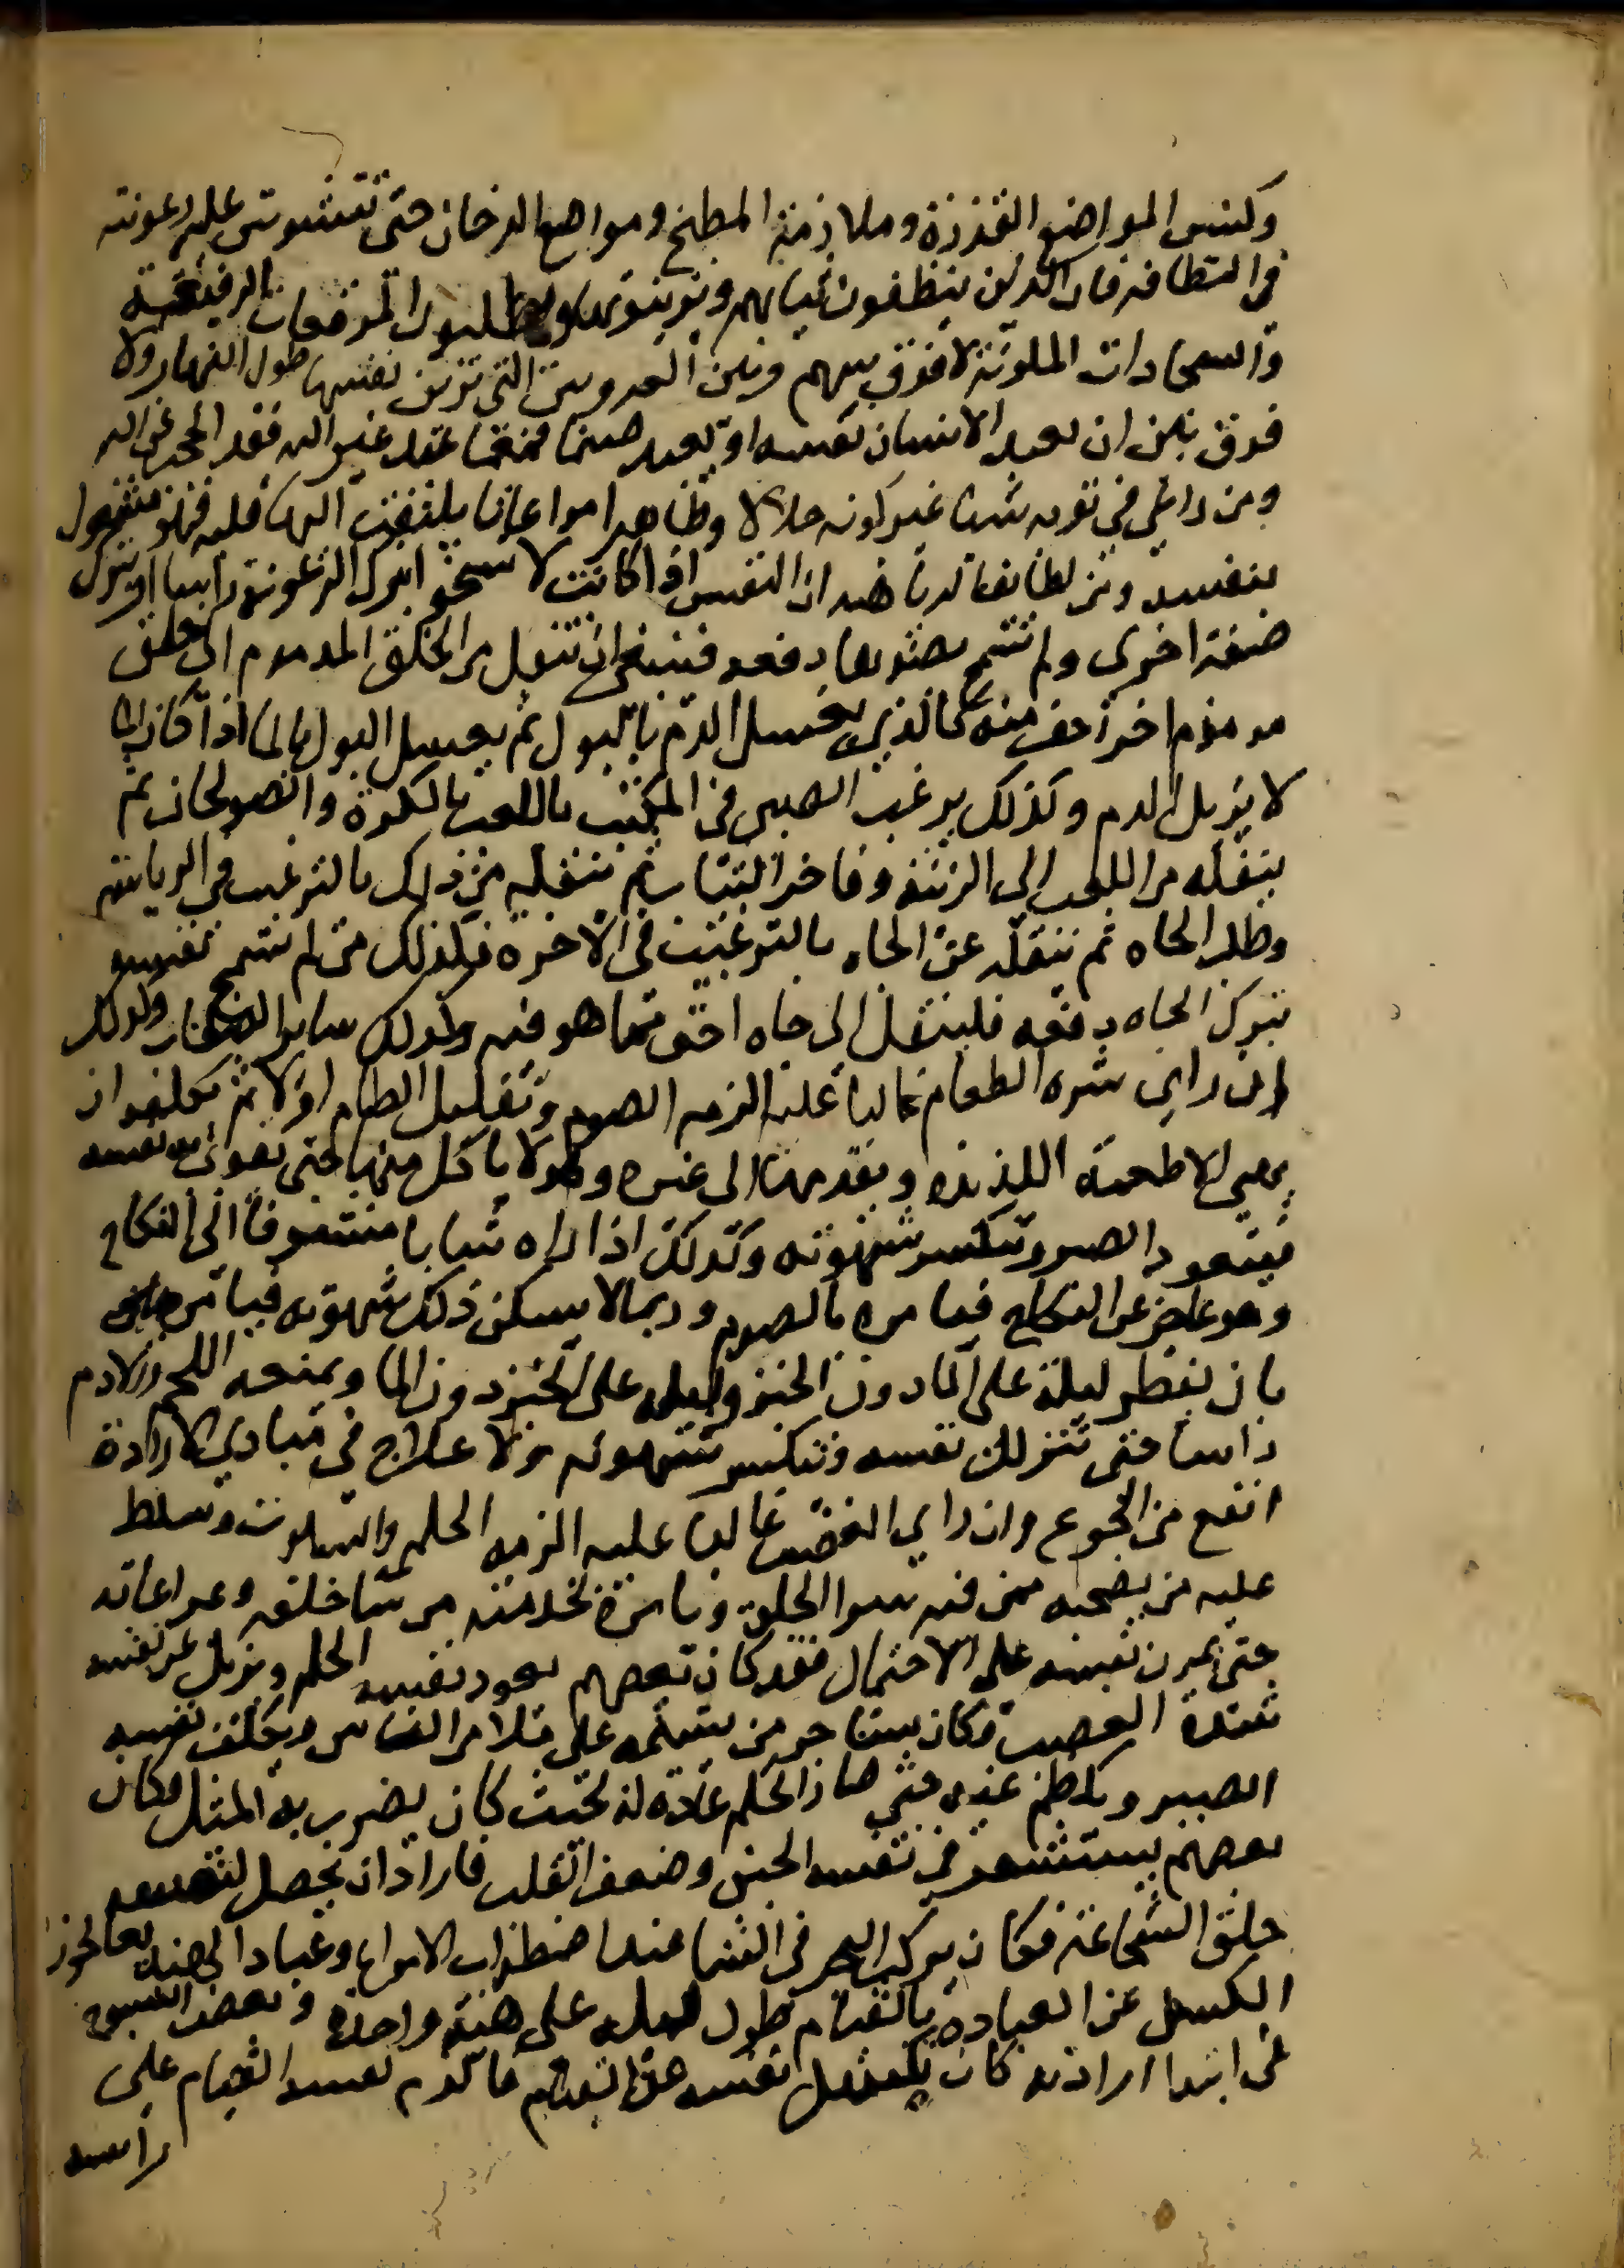 وكنس المواضع القذرة وملازمة المطبخ ومواضع الدخان حتى تتشوش عليه رعونته
في النظافة فان الذين ينظفون ثيابهم ويزينونها ويطلبون المرقعات الرفيعة
والسجادات الملونة لا فرق بينهم وبين العروس التي تزين نفسها طول النهار ولا
فرق بين ان يعبد الانسان نفسه او يعبد صنما فمهما عبد غير الله فقد احجب عن الله
ومن راعى في ثوبه شيئا غير كونه حلالا وطاهرا مراعاة يلتفت اليها قلبه فهو مشغول
بنفسه ومن لطايف الرياضه ان النفس اذا كانت لا تسخو بترك الرعونة راسا او بترك
صفة اخرى ولم تسمح بضدها دفعه فينبغي ان تنقل من الخلق المذموم الى خلق
مذموم اخر اخف منه كالذي يغسل الدم بالبول ثم يغسل البول بالماء اذا كان الما
لا يزيل الدم وكذلك يرغب الصبي في المكتب باللعب بالكرة والصولجان ثم
ينقله من اللعب الى الزينة وفاخر الثياب ثم ينقله من ذلك بالترغيب في الرياسة
وطلب الجاه ثم ينقله عن الجاه بالترغيب في الاخرة فكذلك من لم تسمح نفسه
بترك الجاه دفعه فلينتقل الى جاه اخف مما هو فيه وكذلك ساير الصفات وكذلك
ان راى شره الطعام غالبا عليه الزمه الصوم وتقليل الطعام اولا ثم يكلفه ان
يهيي الاطعمة اللذيذه ويقدمها الى غيره وهو لا ياكل منها حتى تقوى بها نفسه
فيتعود الصبر وتنكسر شهوته وكذلك اذا راه شابا متشوفا الى النكاح
وهو عاجز عن النكاح فيامره بالصوم وربما لا يسكن ذلك شهوته فيامره
بان يفطر ليلة على الما دون الخبز وليله على الخبز دون الما ويمنعه اللحم والادم
راسا حتى تتذلل نفسه وتنكسر شهوته ولا علاج في مبادي الارادة
انفع من الجوع وان راى الغضب غالبا عليه الزمه الحلم والسكوت وسلط
عليه من يصحبه ممن فيه سوا الخلق ويامره بخدمة من سا خلقه ومراعاته
حتى يمرن نفسه على الاحتمال فقد كان بعضهم يعود نفسه الحلم ويزيل عن نفسه
شدة الغضب فكان يستاجر من يشتمه على ملا من الناس ويكلف نفسه
الصبر ويكظم غيظه حتى صار الحلم عادة له بحيث كان يضرب به المثل وكان
بعضهم يستشعر في نفسه الجبن وضعف القلب فاراد ان يحصل لنفسه
خلق الشجاعة فكان يركب البحر في الشتا عند اضطراب الامواج وعباد الهند يعالجون
الكسل عن العبادة بالقيام طول الليله على هيئة واحدة وبعض الشيوخ
في ابتدا ارادته كان يكسل نفسه عن القيام فالزم نفسه القيام على
راسه